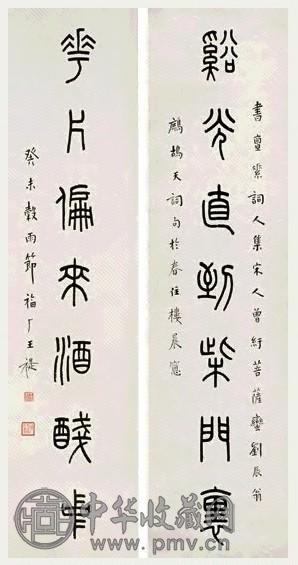 書亶詞人集宋人曾紆菩薩蠻劉辰翁
谿光直到柴門裏
鷓鴣天詞句於春住樓晨窓
花片偏來酒醆中
癸未穀雨節福厂王禔
中华收藏网
www.pmv.cn